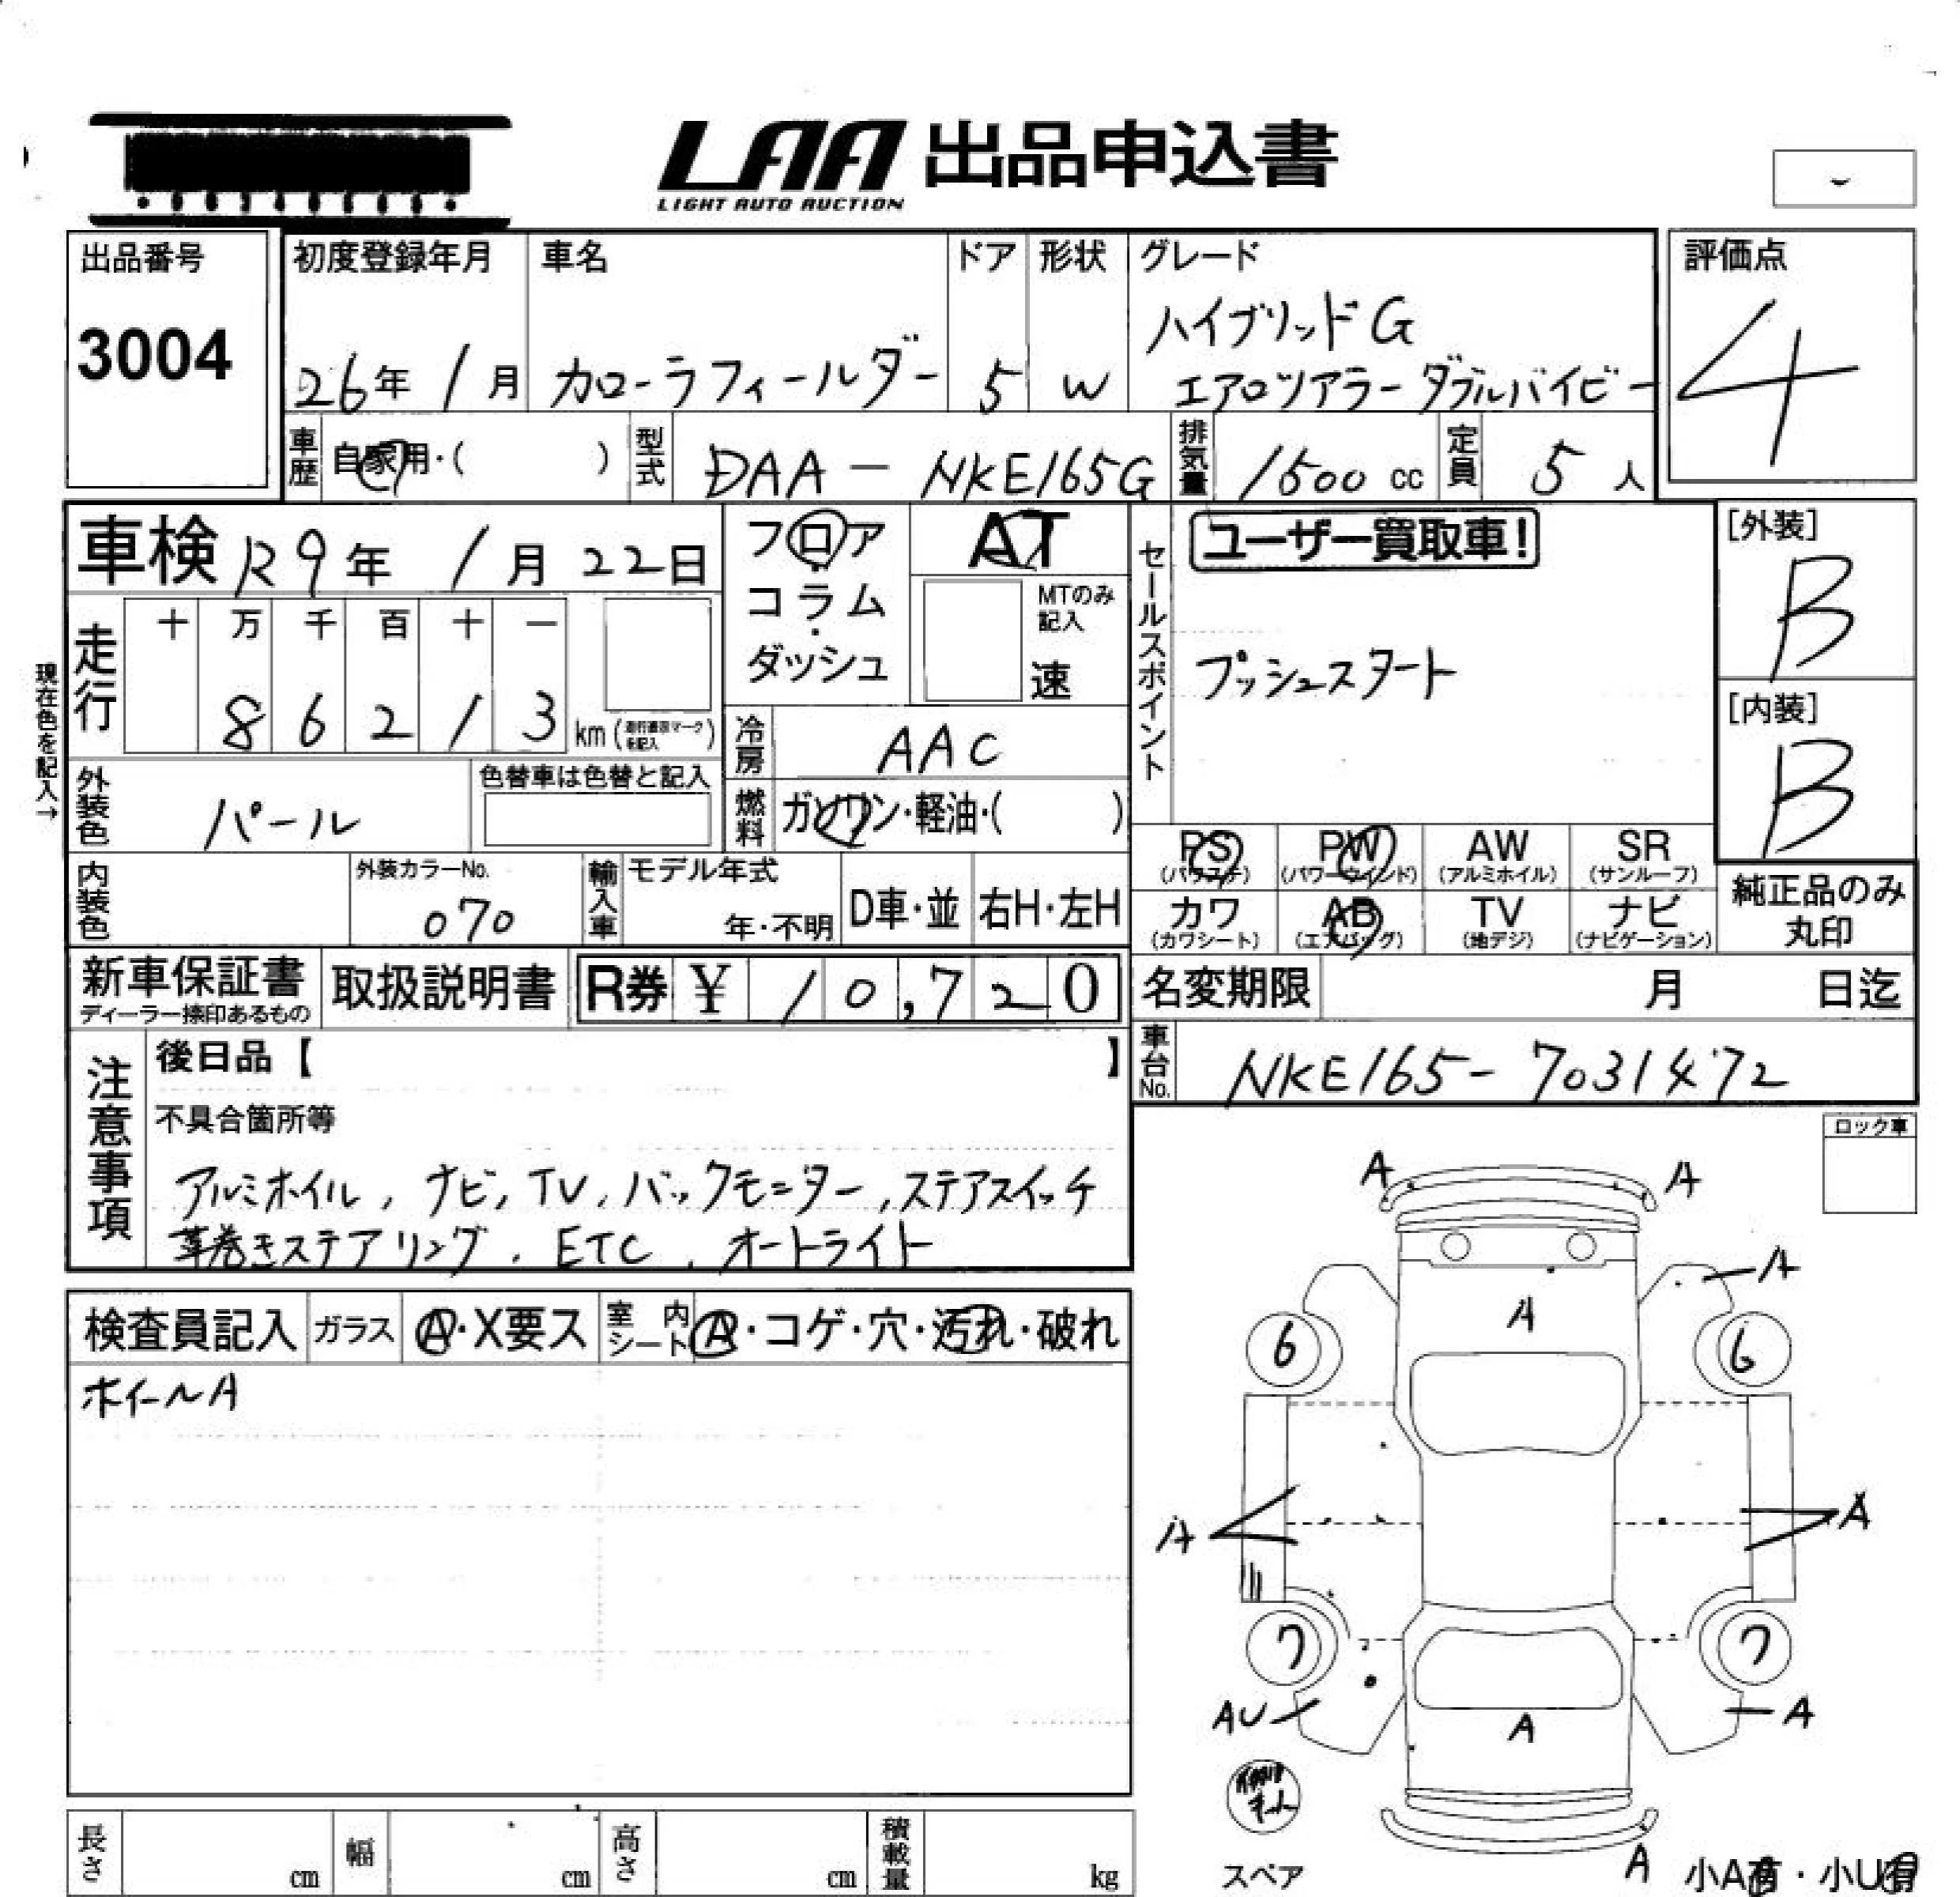 LAA 出品申込書
LIGHT AUTO AUCTION
出品番号
3004
初度登録年月
26年 1月
車名
カローラフィールダー
ドア
5
形状
W
グレード
ハイブリッドG
エアロツアラー ダブルバイビー
評価点
4
車歴 自家用・( )
型式 DAA - NKE165G
排気量 1500 cc
定員 5 人
車検 R9年 1月 22日
フロア・コラム・ダッシュ
AT
MTのみ記入
速
セールスポイント
ユーザー買取車!
プッシュスタート
[外装]
B
[内装]
B
現在色を記入→
走行
十 万 千 百 十 一
8 6 2 1 3 km
冷房 AAC
外装色 パール
色替車は色替と記入
燃料 ガソリン・軽油・( )
PS (パワステ) PW (パワーウインド) AW (アルミホイル) SR (サンルーフ)
カワ (カワシート) AB (エアバッグ) TV (地デジ) ナビ (ナビゲーション)
純正品のみ丸印
内装色
外装カラーNo.
070
輸入車
モデル年式
年・不明
D車・並
右H・左H
新車保証書
ディーラー捺印あるもの
取扱説明書
R券 ¥ 10,720
名変期限 月 日迄
車台No. NKE165-7031472
注意事項
後日品【 】
不具合箇所等
アルミホイル, ナビ, TV, バックモニター, ステアスイッチ
革巻きステアリング, ETC, オートライト
ロック車
検査員記入 ガラス A・X要ス 室内シート A・コゲ・穴・汚れ・破れ
ホイールA
A A
A
A
6 6
A A
7 7
AU A
A
スペア
A
小A有・小U有
長さ cm 幅 cm 高さ cm 積載量 kg